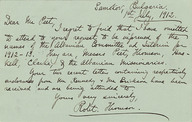 Samokov, Bulgaria,
1st July, 1912.
Dear Mr. Peet,
I regret to find that I have omitted
to attend to your request to be informed of the
names of the Albanian Committee ad Interim for
1912-13. They are Messrs. Peet, Thomson, Ken-
nedy, Clarke, & the Albanian Missionaries.
Your two recent letters containing respectively
endorsed from Mr. Kennedy & Mr. Erickson have been
received and are being attended to.
Yours very sincerely,
Robt. Thomson.